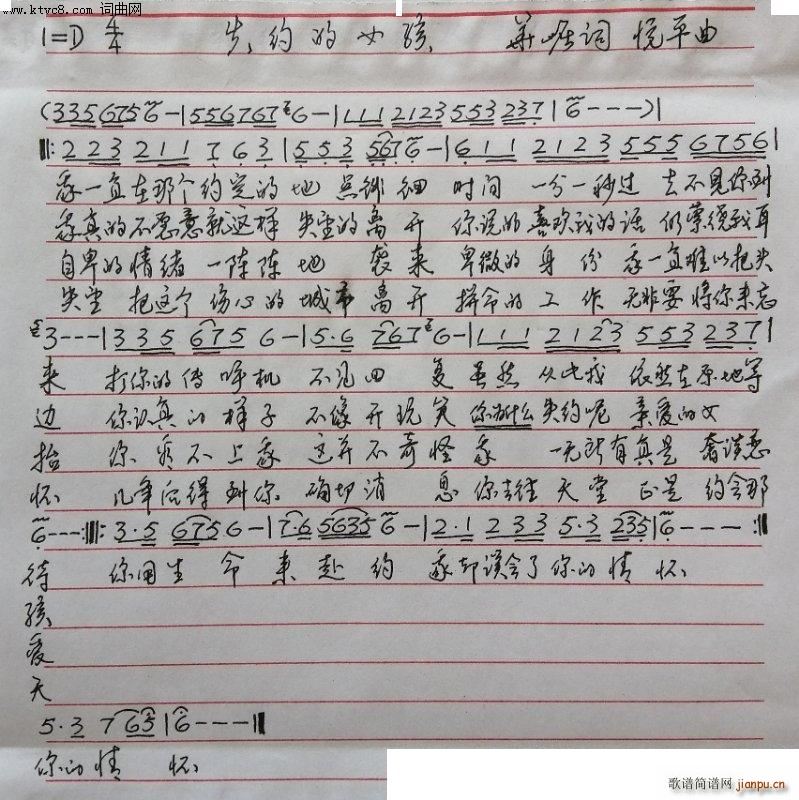 www.ktvc8.com 词曲网
1=D 4/4 失约的女孩 词 悦平曲
(335 6756-|556767 6-|111 2123 553 237|6---)|
||:223 211 7 63|553 5676-|611 2123 555 6756|
我一直在那个约定的地点徘徊 时间一分一秒过去不见你到
我真的不愿意就这样失望的离开 你说的喜欢我的话 仍萦绕我耳
自卑的情绪一阵阵地袭来 卑微的身份 我一直难以把头
失望 把这个伤心的城市离开 拼命的工作 无非要将你来忘
3---|335 675 6-|5·6 767 6-|111 2123 553 237|
来 打你的传呼机 不见回复 虽然从此我依然在原地等
边 你认真的样子 不像开玩笑 你为什么失约呢 亲爱的女
抬 你看不上我 这并不奇怪 我一无所有真是奢谈恋
怀 几年后得到你 确切消息 你去往天堂 正是约会那
6---:||:3·5 675 6-|7·6 5635 6-|2·1 233 5·3 235|6---:||
待 你用生命来赴约 我却误会了你的情怀
孩
爱
天
5·3 7 65|6---||
你的情怀
歌谱简谱网
jianpu.cn